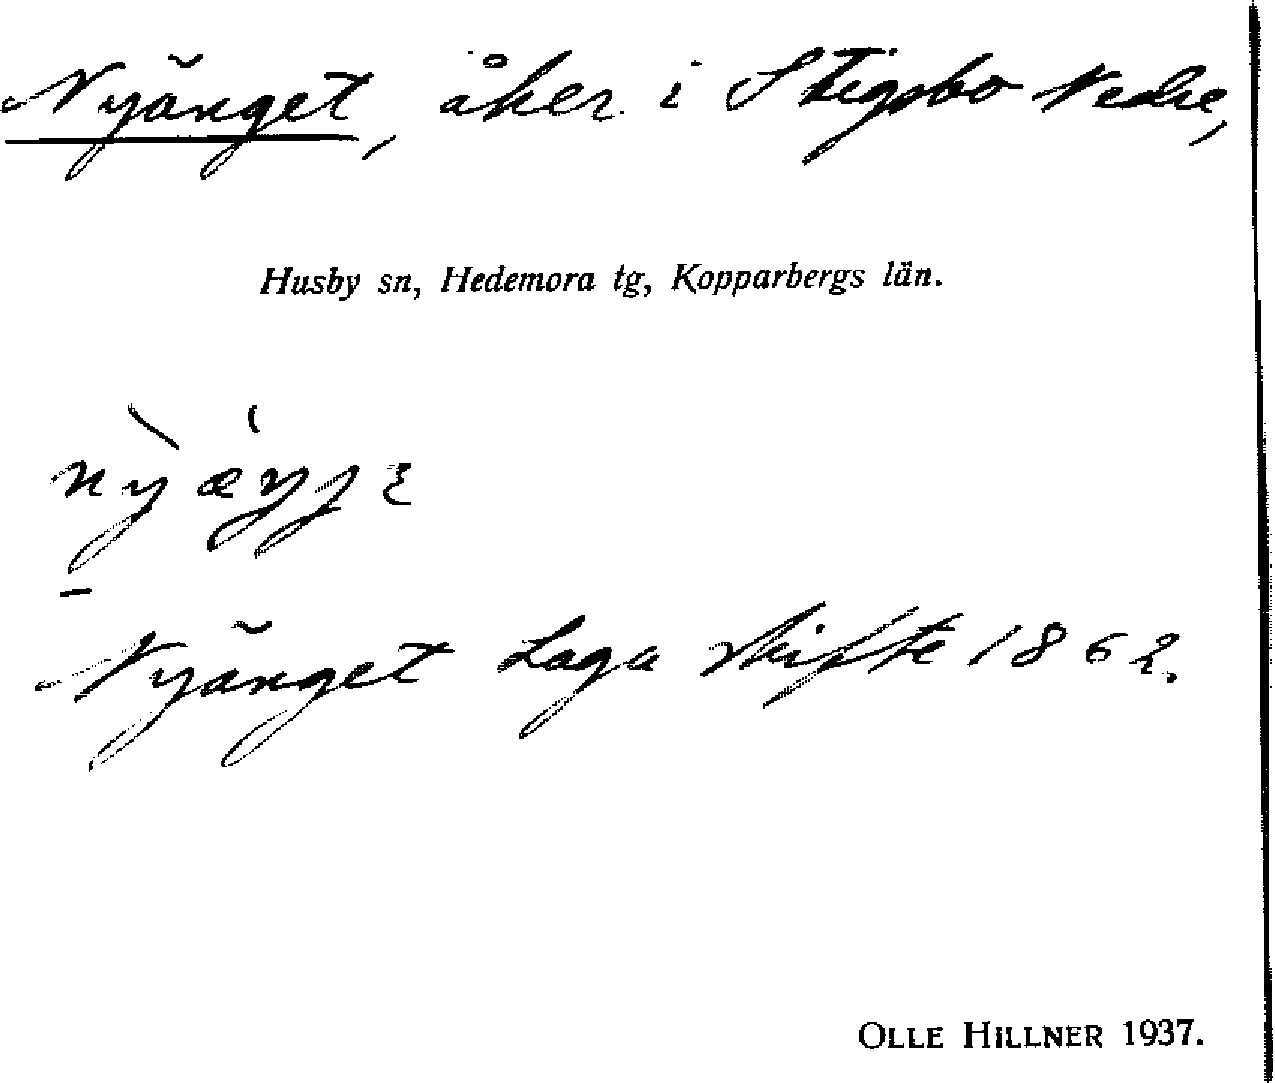 Nyänget, åker i Stigsbo Nedre,
Husby sn, Hedemora tg, Kopparbergs län.
nỳæ̀ŋjɛ
Nyänget Laga skifte 1862.
OLLE HILLNER 1937.